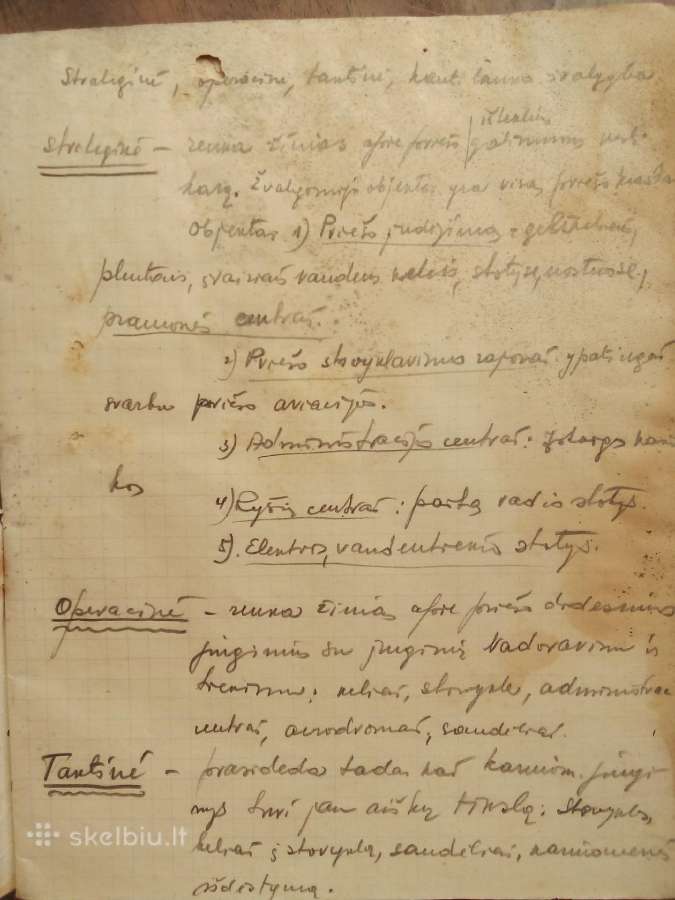 Strateginė, operacinė, taktinė, kaut. lauko žvalgyba
ištekius
Strateginė – renka žinias apie priešo galimumus vesti
karą. Žvalgomoji objektas yra visas priešo kraštas
Objektas 1) Priešo judėjimas geležinkeliais,
plentais, įvairiais vandens keliais, stotyse, uostuose,
pramonės centrai.
2) Priešo stovyklavimo rajonai ypatingai
svarbu priešo aviacija.
3) Administracijos centrai:
kos
4) Ryšių centrai: paštą radio stotys.
5). Elektros, vandentiekio stotys.
Operacinė – renka žinias apie priešo didesnius
junginius su junginių vadovavimu ir
keliai, stovykla, administrac
centrai, aerodromai, sandėliai.
Taktinė – prasideda tada kai kariuom. jungi
nys turi jau aiškų tikslą: stovyklas,
keliai į stovyklą, sandėliai, kariuomenės
išdėstymą.
skelbiu.lt